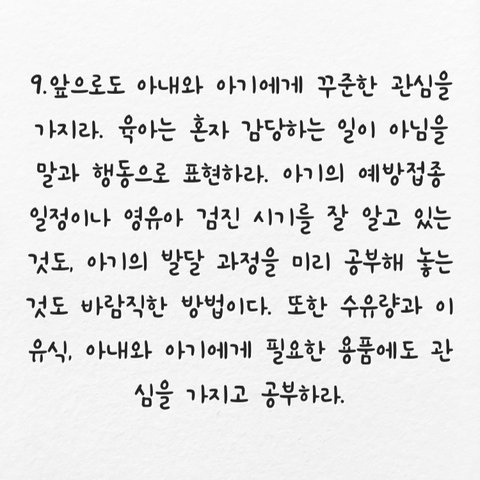 9.앞으로도 아내와 아기에게 꾸준한 관심을
가지라. 육아는 혼자 감당하는 일이 아님을
말과 행동으로 표현하라. 아기의 예방접종
일정이나 영유아 검진 시기를 잘 알고 있는
것도, 아기의 발달 과정을 미리 공부해 놓는
것도 바람직한 방법이다. 또한 수유량과 이
유식, 아내와 아기에게 필요한 용품에도 관
심을 가지고 공부하라.